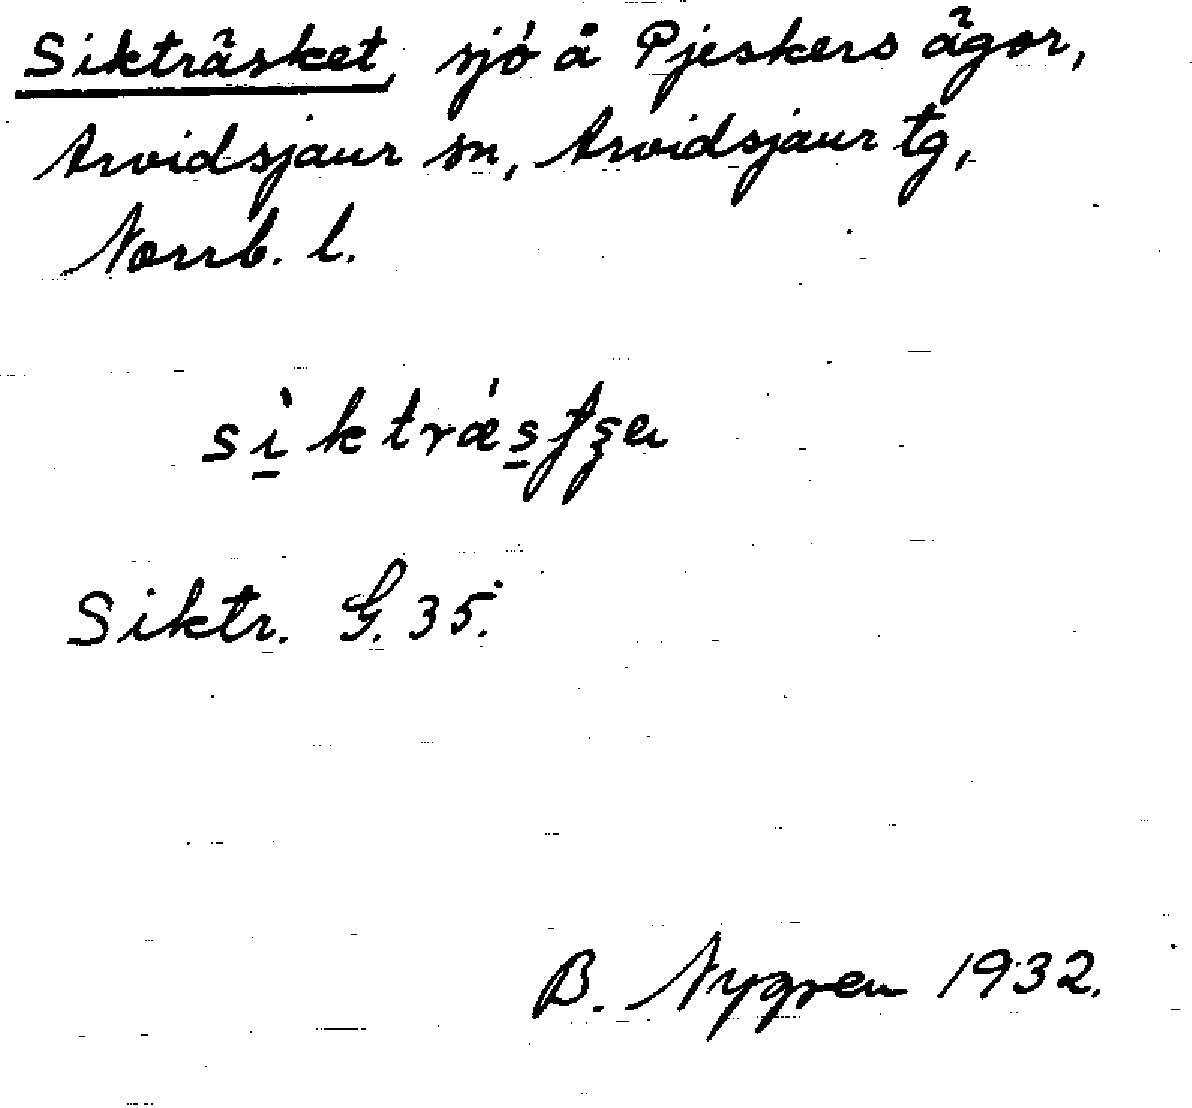 Sikträsket, sjö å Pjeskers ägor,
Arvidsjaur sn, Arvidsjaur tg,
Norrb. l.
Siktr. G. 35.
B. Nygren 1932.